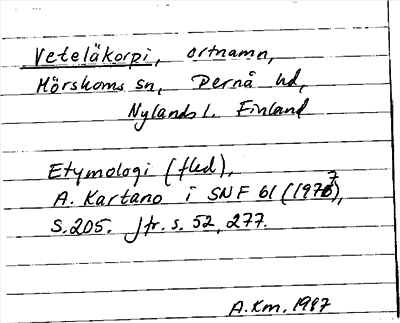 Veteläkorpi, ortnamn,
Mörskoms sn, Pernå hd,
Nylands l. Finland
Etymologi (fled),
A. Kartano i SNF 61 (1977),
S. 205. Jfr. s. 52, 277.
A.Km. 1987